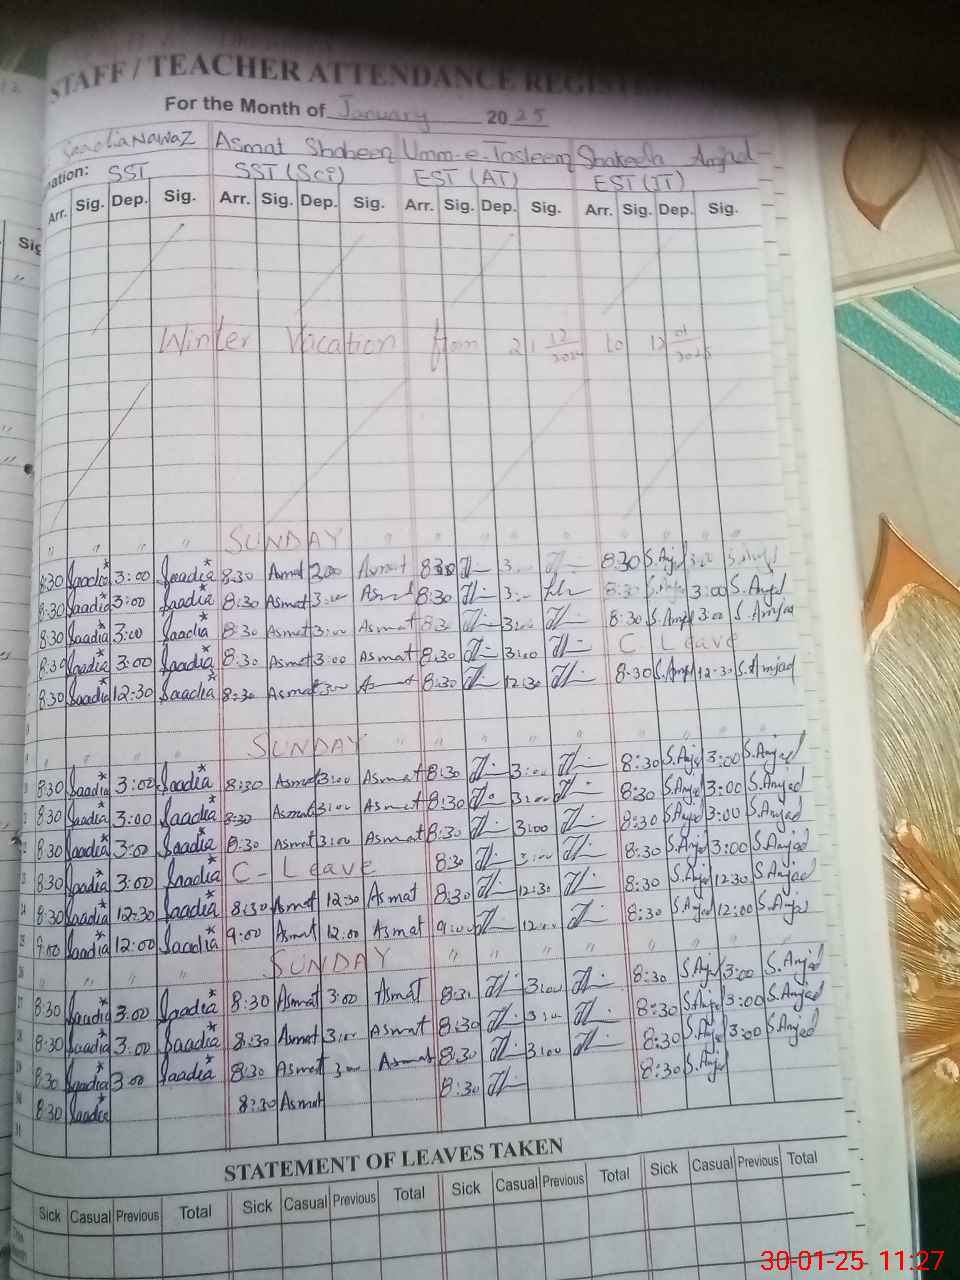 STAFF / TEACHER ATTENDANCE REGISTE
For the Month of January 2025
Saadia Nawaz Asmat Shaheen Umm-e-Tasleem Shakeela Amjad
nation: SST SST (Sci) EST (AT) EST (JT)
Arr. Sig. Dep. Sig. Arr. Sig. Dep. Sig. Arr. Sig. Dep. Sig. Arr. Sig. Dep. Sig.
Winter Vacation from 21 12/2024 to 12 01/2025
SUNDAY
8:30 Saadia 3:00 Saadia 8:30 Asmat 3:00 Asmat 8:30 3:00 8:30 S.Anjd 3:00 S.Anjd
8:30 Saadia 3:00 Saadia 8:30 Asmat 3:00 Asmat 8:30 3:00 8:30 S.Anjd 3:00 S.Anjd
8:30 Saadia 3:00 Saadia 8:30 Asmat 3:00 Asmat 8:30 3:00 8:30 S.Amjd 3:00 S.Amjad
8:30 Saadia 3:00 Saadia 8:30 Asmat 3:00 Asmat 8:30 3:00 C Leave
8:30 Saadia 12:30 Saadia 8:30 Asmat 3:00 Asmat 8:30 12:30 8:30 S.Amjd 12:30 S.Amjad
SUNDAY
8:30 Saadia 3:00 Saadia 8:30 Asmat 3:00 Asmat 8:30 3:00 8:30 S.Anjd 3:00 S.Anjad
8:30 Saadia 3:00 Saadia 8:30 Asmat 3:00 Asmat 8:30 3:00 8:30 S.Anjd 3:00 S.Anjad
8:30 Saadia 3:00 Saadia 8:30 Asmat 3:00 Asmat 8:30 3:00 8:30 S.Anjd 3:00 S.Anjad
8:30 Saadia 3:00 Saadia C-Leave 8:30 3:00 8:30 S.Anjd 3:00 S.Anjad
24 8:30 Saadia 12:30 Saadia 8:30 Asmat 12:30 Asmat 8:30 12:30 8:30 S.Anjd 12:30 S.Anjad
25 9:00 Saadia 12:00 Saadia 9:00 Asmat 12:00 Asmat 9:00 12:00 8:30 S.Anjd 12:00 S.Anjd
26 SUNDAY
27 8:30 Saadia 3:00 Saadia 8:30 Asmat 3:00 Asmat 8:30 3:00 8:30 S.Anjd 3:00 S.Anjad
28 8:30 Saadia 3:00 Saadia 8:30 Asmat 3:00 Asmat 8:30 3:00 8:30 S.Anjd 3:00 S.Anjad
29 8:30 Saadia 3:00 Saadia 8:30 Asmat 3:00 Asmat 8:30 3:00 8:30 S.Anjd 3:00 S.Anjad
30 8:30 Saadia 8:30 Asmat 8:30 8:30 S.Anjd
31
STATEMENT OF LEAVES TAKEN
Sick Casual Previous Total Sick Casual Previous Total Sick Casual Previous Total Sick Casual Previous Total
30-01-25 11:27